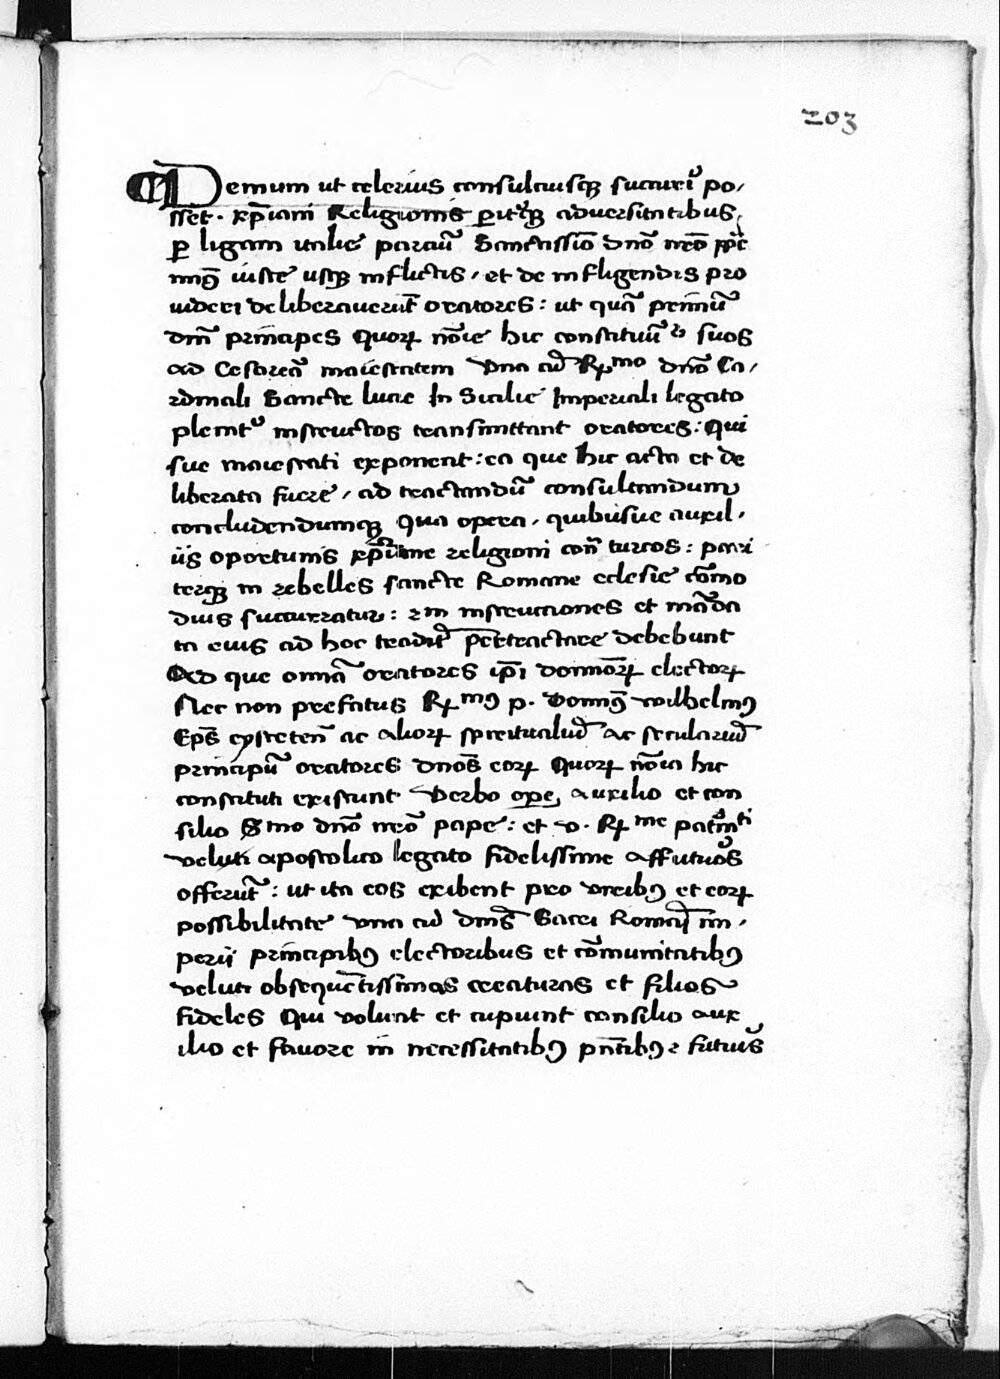 203
Demum ut celerius consultiusq; succurri po,
sset. xp̄iani Religionis p̲it'q; adversitatibus,
p̲ ligam italie paratā Sanctissio dn̄o nr̄o p̄p̄e
iuste usq; inflictis, et de infligendis pro
videri deliberaverūt oratores: ut quā primū
dn̄i principes quoꝝ nōie hic constituūr suos
ad Cesareā maiestatem una cū Rmo dn̄o Ca,
rdinali Sancte lucie In Sicilie Imperiali legato
instructos transmittant oratores: Qui
sue maiestati exponent: ea que hic acta et de
liberata fuere, ad tractandū consultandum
concludendumq; Qua opera, quibusue auxil,
iis oportunis xp̄iane religioni con̄ turcos: pari
terq; in rebelles sancte Romane eclesie cōmo
dius succurratur: instructiones et mādā
ta eius ad hoc tradit p̄tractare debebunt
Ad que omnia oratores ip̄i dominoꝝ electoꝝ
Nec non prefatus Rmꝰ p. Domn̄s wilhelmꝰ
Ep̄s eysteten̄ ac alioꝝ spiritualiū ac seculariū
principū oratores dn̄os eoꝝ Quoꝝ nōia hic
constituti existunt Verbo ope, auxilio et con
silio S mo dn̄o nr̄o pape: et v. R me pat'nti
veluti apostolico legato fidelissime affutūos
offerūt: ut ita eos exibent pro viribꝰ et eoꝝ
possibilitate una cū dn̄is Sacri Romaī im,
perii principibꝰ electoribus et cōmunitatibꝰ
veluti obsequētissimas creaturas et filios
fideles Qui volunt et cupiunt consilio aux
ilio et favore in necessitatibꝰ pn̄tibꝰ 2 futuīs